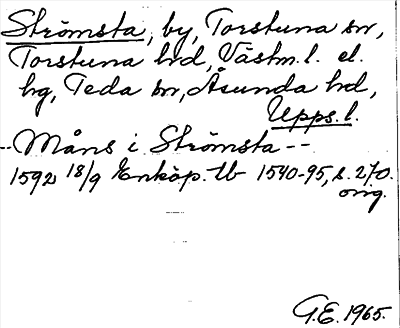 Strömsta, by, Torstuna sn,
Torstuna hd, Västm. l. el.
hg, Teda sn, Åsunda hd,
Upps. l.
--Måns i Strömsta--
1592 18/9 Enköp. tb 1540-95, s. 270.
orig.
G.E. 1965.